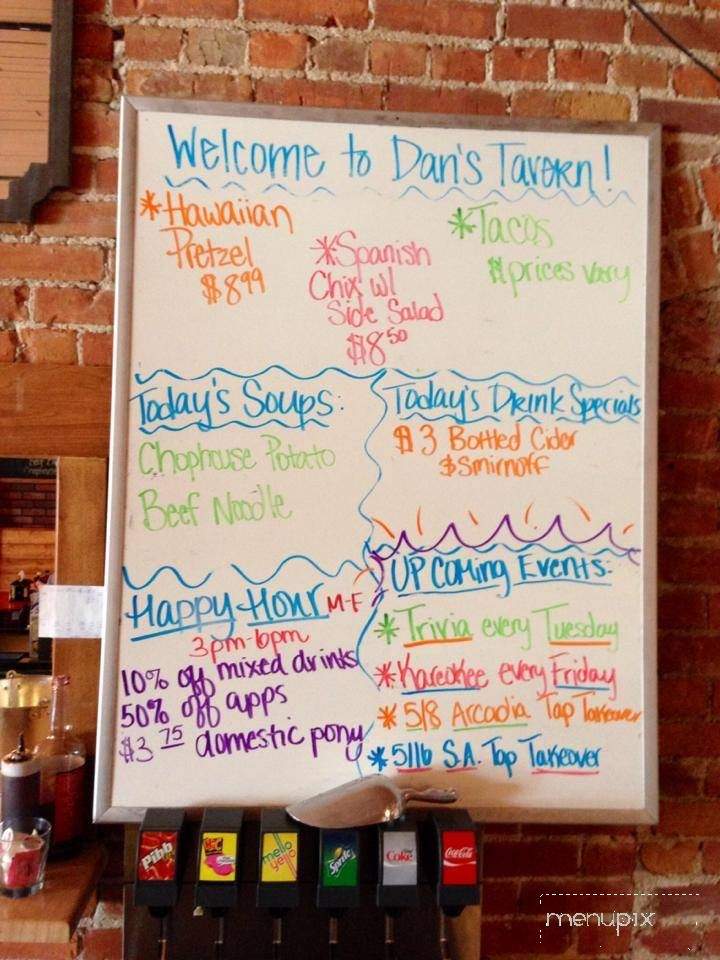 Welcome to Dan's Tavern!
*Hawaiian
Pretzel
$8⁹⁹
*Spanish
Chix w/
Side Salad
$8⁵⁰
*Tacos
prices vary
Today's Soups:
Chophouse Potato
Beef Noodle
Today's Drink Specials
$3 Bottled Cider
&Smirnoff
Happy Hour M-F
3pm-6pm
10% off mixed drinks
50% off apps
$3.75 domestic pony
UPComing Events:
*Trivia every Tuesday
*Kareokee every Friday
*5/8 Arcadia Tap Takeover
*5/16 S.A. Tap Takeover
Pibb
mello yello
Sprite
Coke
Coca-Cola
menupix